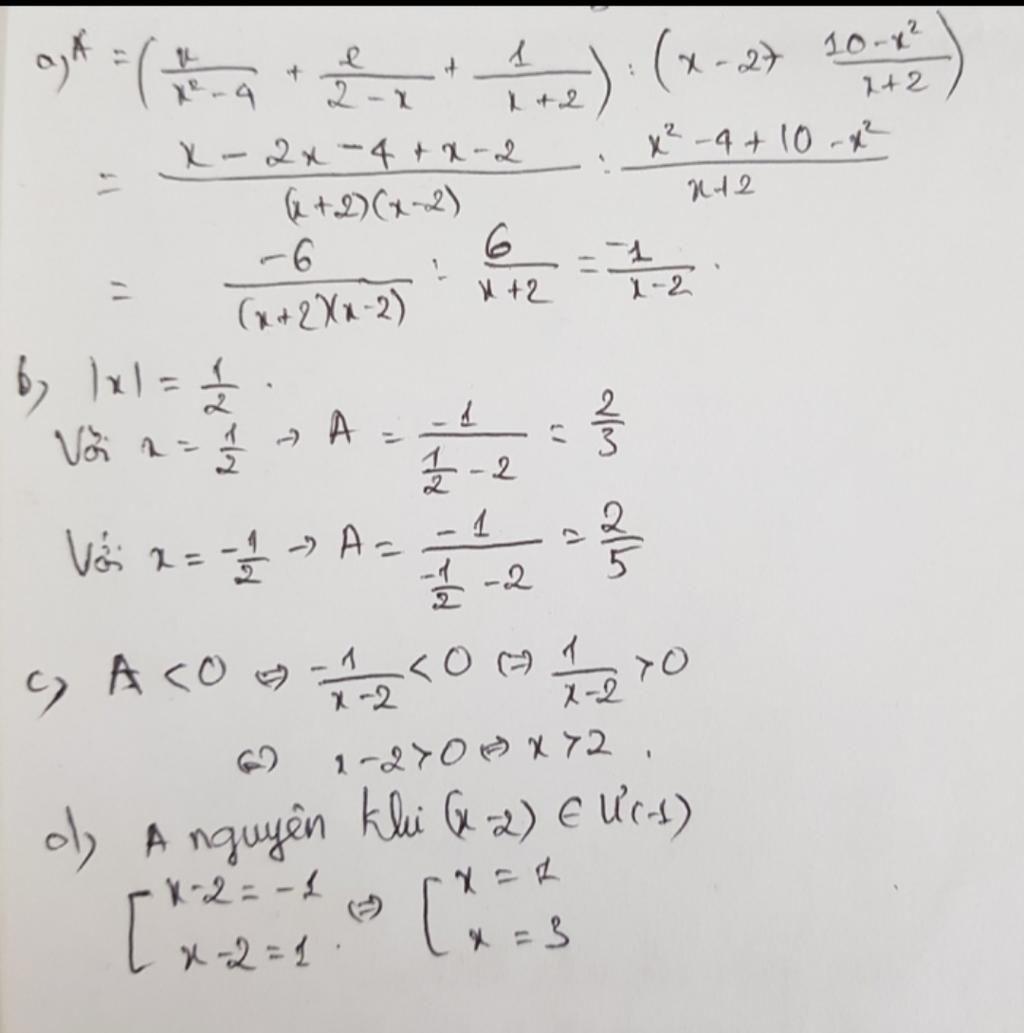 a, A = (x/(x²-4) + 2/(2-x) + 1/(x+2)) : (x-2+ (10-x²)/(x+2))
= (x-2x-4+x-2)/((x+2)(x-2)) : (x²-4+10-x²)/(x+2)
= -6/((x+2)(x-2)) : 6/(x+2) = -1/(x-2) .
b, |x| = 1/2 .
Với x = 1/2 → A = -1/(1/2 - 2) = 2/3
Với x = -1/2 → A = -1/(-1/2 - 2) = 2/5
c, A < 0 ⇔ -1/(x-2) < 0 ⇔ 1/(x-2) > 0
⇔ x-2 > 0 ⇔ x > 2 .
d, A nguyên khi (x-2) ∈ Ư(-1)
[ x-2 = -1 ⇔ [ x = 1
x-2 = 1 . x = 3